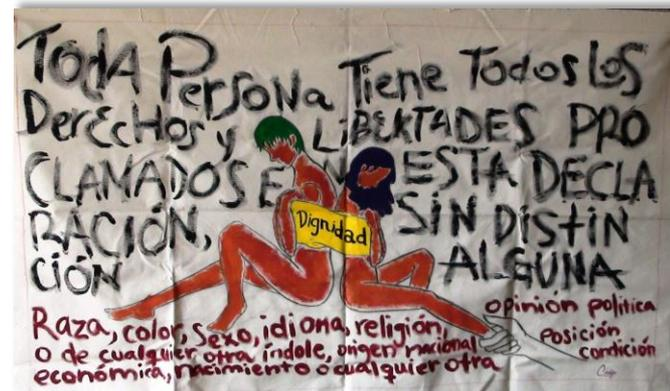 TodA Persona Tiene Todos los
DerEcHos y LiBERTADES PRO
CLAMADOS EN ESTA DECLA
RACIÓN, SIN DiStiN
CIÓN ALGUNA
Dignidad
Raza, color, Sexo, idioma, religión, opinión política
o de cualquier otra índole, origen nacional posición
económica, nacimiento o cualquier otra condición